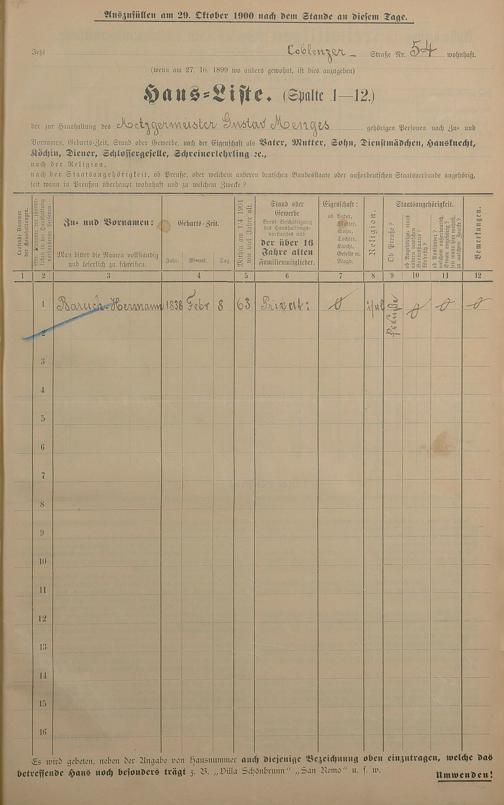 Auszufüllen am 29. Oktober 1900 nach dem Stande an diesem Tage.
Jetzt Coblenzer- Straße Nr. 54 wohnhaft.
(wenn am 27. 10. 1899 wo anders gewohnt, ist dies anzugeben)
Haus-Liste. (Spalte 1—12.)
der zur Haushaltung des Metzgermeister Gustav Menges gehörigen Personen nach Zu- und
Vornamen, Geburts-Zeit, Stand oder Gewerbe, nach der Eigenschaft als Vater, Mutter, Sohn, Dienstmädchen, Hausknecht,
Köchin, Diener, Schlossergeselle, Schreinerlehrling 2c.,
nach der Religion,
nach der Staatsangehörigkeit, ob Preuße, oder welchem anderen deutschen Bundesstaate oder außerdeutschen Staatsverbande angehörig,
seit wann in Preußen überhaupt wohnhaft und zu welchem Zwecke?
Zu- und Vornamen:
Man bittet die Namen vollständig
und leserlich zu schreiben.
Geburts-Zeit.
Jahr. Monat. Tag.
Stand oder
Gewerbe
der über 16
Jahre alten
Familienmitglieder.
Eigenschaft:
ob Vater,
Mutter,
Sohn,
Tochter,
Knecht,
Geselle o.
Magd.
Religion.
Staatsangehörigkeit.
Ob Preuße?
Bemerkungen.
1 2 3 4 5 6 7 8 9 10 11 12
1 Baruch Hermann 1838 Febr 8 63 Privat: Preuße
2
3
4
5
6
7
8
9
10
11
12
13
14
15
16
Es wird gebeten, neben der Angabe von Hausnummer auch diejenige Bezeichnung oben einzutragen, welche das
betreffende Haus noch besonders trägt z. B. „Villa Schönbrunn" „San Remo" u. s. w.
Umwenden!